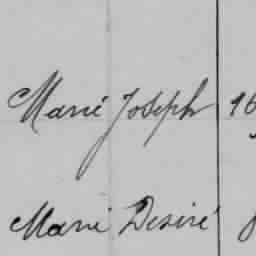 Marié Joseph 16
Marié Desiré